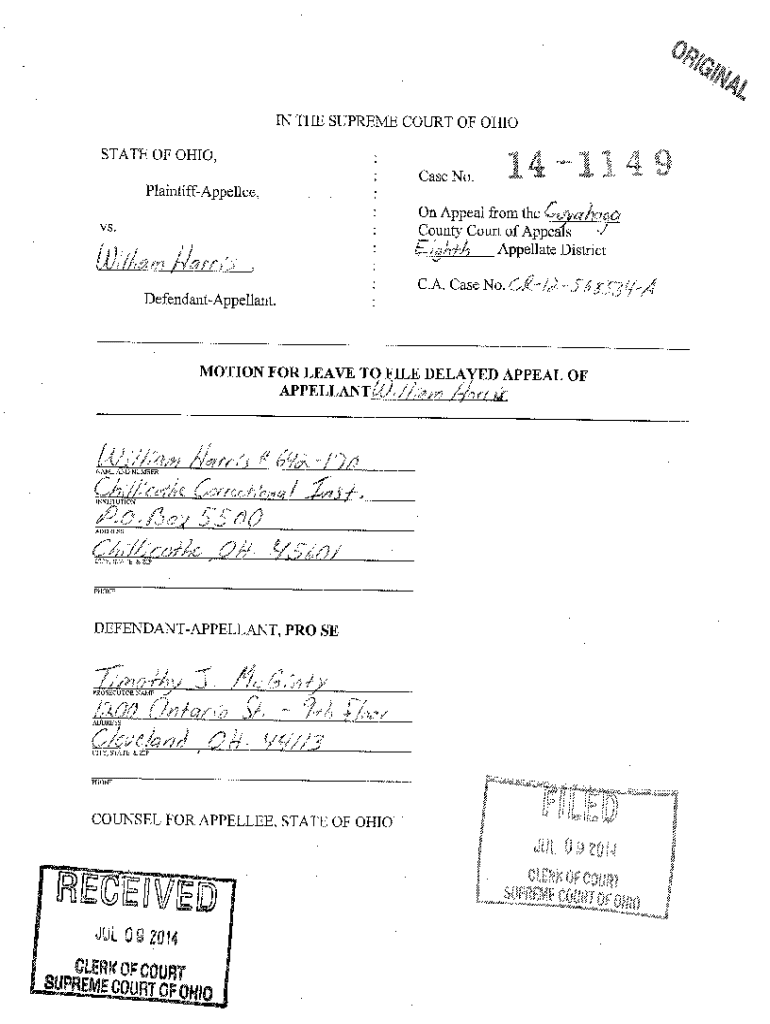 ORIGINAL
IN THE SUPREME COURT OF OHIO
STATE OF OHIO,
Plaintiff-Appellee,
vs.
William Harris,
Defendant-Appellant.
Case No. 14-1149
On Appeal from the Cuyahoga
County Court of Appeals
Eighth Appellate District
C.A. Case No. CR-12-568534-A
MOTION FOR LEAVE TO FILE DELAYED APPEAL OF
APPELLANT William Harris
William Harris # 642-170
NAME AND NUMBER
Chillicothe Correctional Inst.
INSTITUTION
P.O. Box 5500
ADDRESS
Chillicothe, OH. 45601
CITY, STATE & ZIP
PHONE
DEFENDANT-APPELLANT, PRO SE
Timothy J. McGinty
PROSECUTOR NAME
1200 Ontario St. - 9th Floor
ADDRESS
Cleveland, OH. 44113
CITY, STATE & ZIP
PHONE
COUNSEL FOR APPELLEE, STATE OF OHIO
FILED
JUL 09 2014
CLERK OF COURT
SUPREME COURT OF OHIO
RECEIVED
JUL 09 2014
CLERK OF COURT
SUPREME COURT OF OHIO